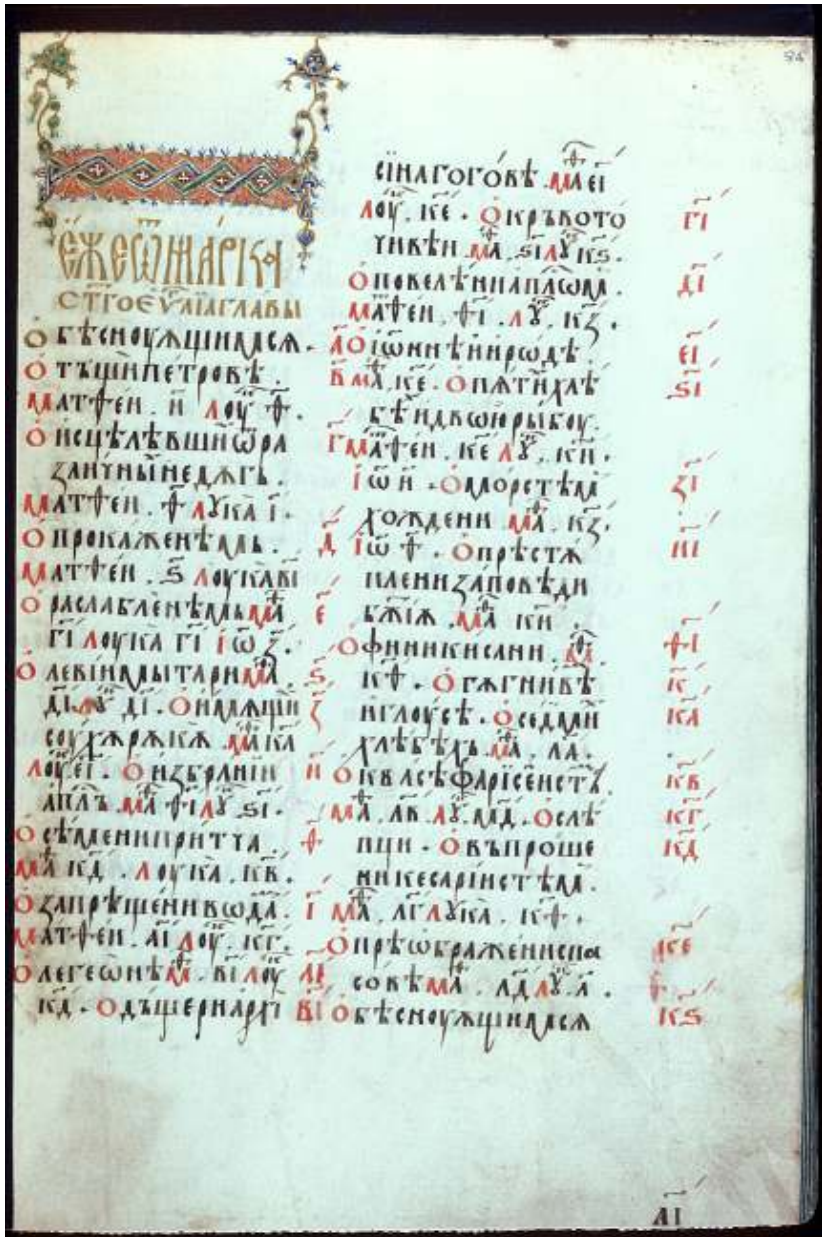 ЕЖЕ Ѿ МАРКА
СТ҃ГО ЕѴ҃ЛІА ГЛАВЫ
О бѣсноуѧщимсѧ . а҃
О тъщи петровѣ . в҃
матѳеи . и҃ лоу ѳ҃ .
О исцѣлѣвши ѿ ра г҃
зличныи недѫгъ .
матѳеи . ѳ҃ лꙋка і҃ .
О прокаженѣмь . д҃
матѳеи . ѕ҃ лоука в҃і
О раслабленѣмь ма е҃
г҃і лоука г҃і іѡ ꙁ҃ .
О левіи мытари ма . ѕ҃
д҃і лоу д҃і . О имѧщи ꙁ҃
соухѫ рѫкѫ . ма к҃а
лоу е҃і . О избраніи и҃
ап҃лъ . ма ѳ҃і лꙋ . ѕ҃і .
О сѣмени притча . ѳ҃
ма к҃д . лоука . к҃в .
О запрѣщени вода . і҃
матѳеи . а҃і лоу . к҃г .
О легеѡнѣ м . в҃і лоу а҃і
к҃д . О дъщери архі в҃і
сінагоговѣ . ма е҃і
лоу . к҃е . О кръвото г҃і
чивѣи ма . ѕ҃і лꙋ к҃ѕ .
О повелѣни апⷭ҇лѡм . д҃і
матѳеи . ѳ҃і . лꙋ . к҃ꙁ .
О іѡннѣ и ирѡдѣ е҃і
ма . к҃е . О пѧти хлѣ ѕ҃і
бѣ и двѡю рыбоу .
матѳеи . к҃е лꙋ . к҃и .
іѡ и҃ . О морстѣм ꙁ҃і
хождени ма . к҃ꙁ .
іѡ ѳ҃ . О прѣстѫ и҃і
плени заповѣди
бж҃іѧ . ма к҃и .
О финикисани . ма ѳ҃і
к҃ѳ . О гѫгнивѣ к҃
и глоусѣ . О седми к҃а
хлѣбѣхъ . ма . л҃а .
О квасѣ фарісеистѣ . к҃в
ма . л҃в . лꙋ . м҃д . О слѣ к҃г
пци . О въпроше к҃д
ни кесарінстѣм .
ма . л҃г лꙋка . к҃ѳ .
О прѣѡбражени спа к҃е
совѣ ма . л҃д лꙋ . л҃ .
О бѣсноуѧщимсѧ к҃ѕ
а҃і